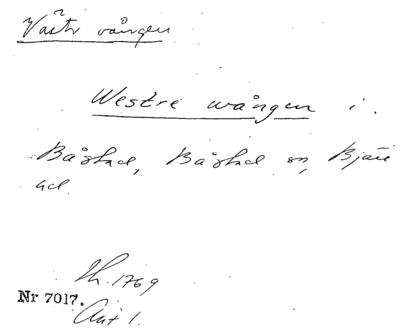 Västr vången
Westre wången i
Båstad, Båstad sn, Bjäre
hd.
Lh. 1769
Nr 7017.
Akt 1.